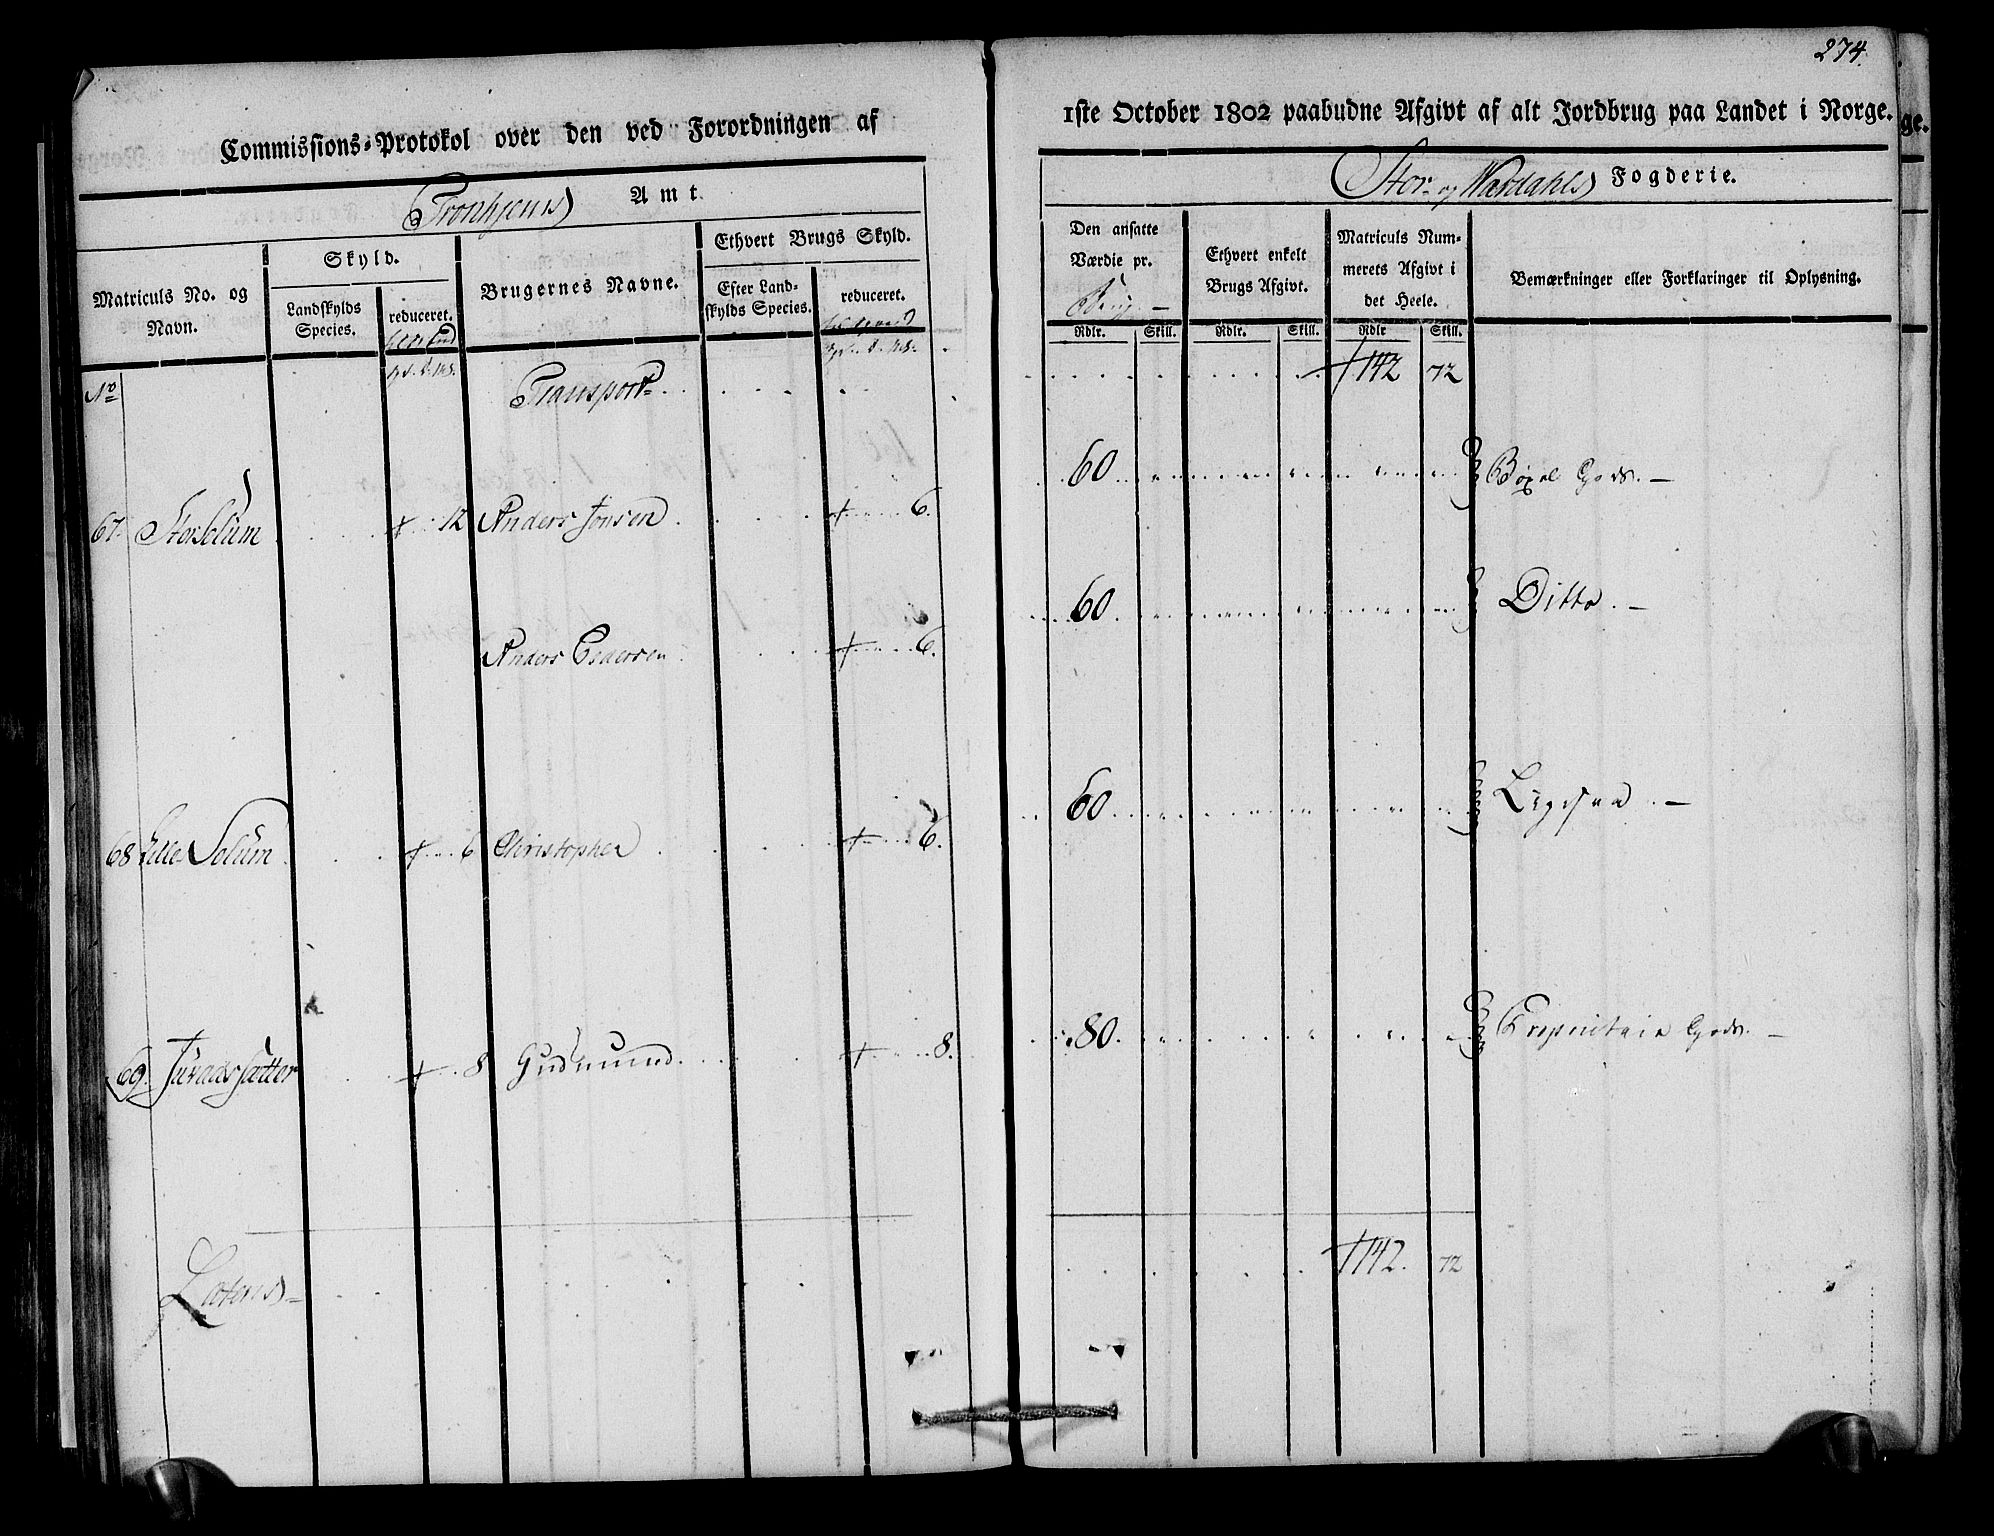 274.
Commissions-Protokol over den ved Forordningen af
1ste October 1802 paabudne Afgivt af alt Jordbrug paa Landet i Norge.
Tronhjems Amt.
Stor- og Værdahls Fogderie.
Matriculs No. og Navn.
Skyld.
Landskylds Species.
reduceret.
Brugernes Navne.
Ethvert Brugs Skyld.
Efter Landskylds Species.
reduceret.
Den ansatte Værdie pr.
Ethvert enkelt Brugs Afgivt.
Matriculs Nummerets Afgivt i det Heele.
Bemærkninger eller Forklaringer til Oplysning.
Rdlr. Skill. Rdlr. Skill. Rdlr Skill.
No Transport 142 72
67. StorSolum 12 Anders Jonsen 6. 60 Bøxel Gods.
Anders Pedersen 6. 60 Ditto.
68 Lille Solum 6 Christopher 6. 60 Ligesaa.
69. 8 Gudmund 8. 80 Proprietair Gods.
Lateris 142. 72